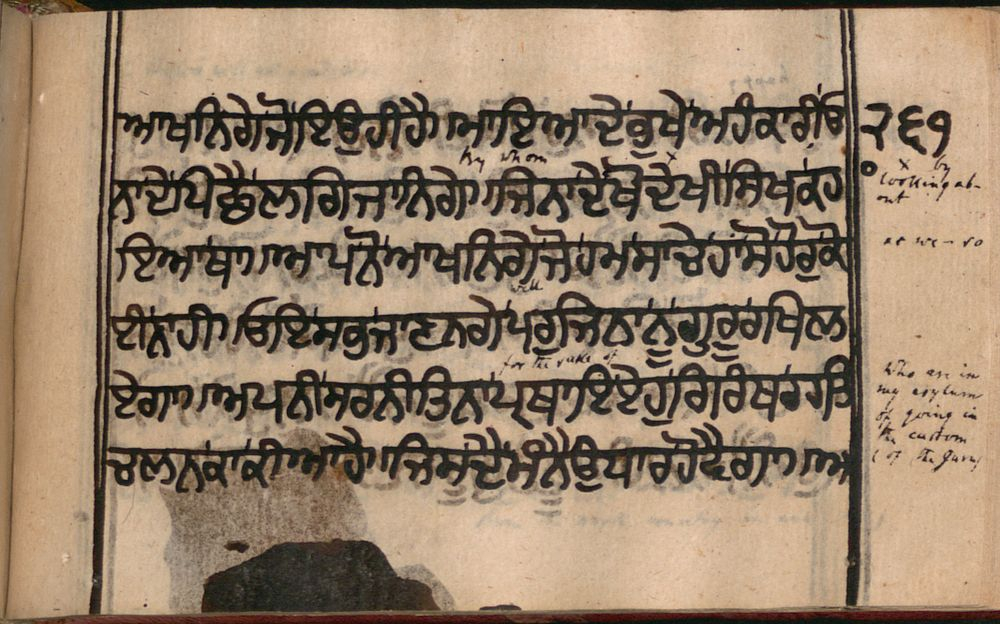 ਆਖਨਿਗੇ ਜੋ ਇਉ ਹੀ ਹੈ। ਮਾਇਆ ਦੇ ਭੁਖੇ ਅਹੰਕਾਰੀਓ
੨੬੧
by whom
ਨਾ ਦੇ ਪਿਛੈ ਲਗਿ ਜਾਨਿਗੇ। ਜਿਨਾ ਦੇ ਖੋ ਦੇਖੀ ਸਿਖ ਕਹ
x by
looking ab-
out
ਇਆ ਥਾ। ਆਪਨੋ ਆਖਨਿਗੇ ਜੋ ਹਮ ਸਾਚੇ ਹਾਂ ਸੋ ਹੋਰੁ ਕੋ
as we - so
will
ਈ ਨਾਹੀ। ਓਇ ਸਭੁ ਜਾਣਨਗੇ ਪਰੁ ਜਿਨਾ ਨੂੰ ਗੁਰੂ ਰਖਿ ਲ
for the sake of
ਏਗਾ। ਅਪਨੀ ਸਰਨੀ ਤਿਨਾ ਪ੍ਰਥਾਇ ਏਹੁ ਗਿਰੰਥ ਰਹਤਿ
who are in
my asylum
of going in
the custom
(of the Guru)
ਚਲਨ ਕਾ ਕੀਆ ਹੈ। ਜਿਸ ਦੈ ਮੰਨੈ ਉਧਾਰ ਹੋਵੈਗਾ। ਅ